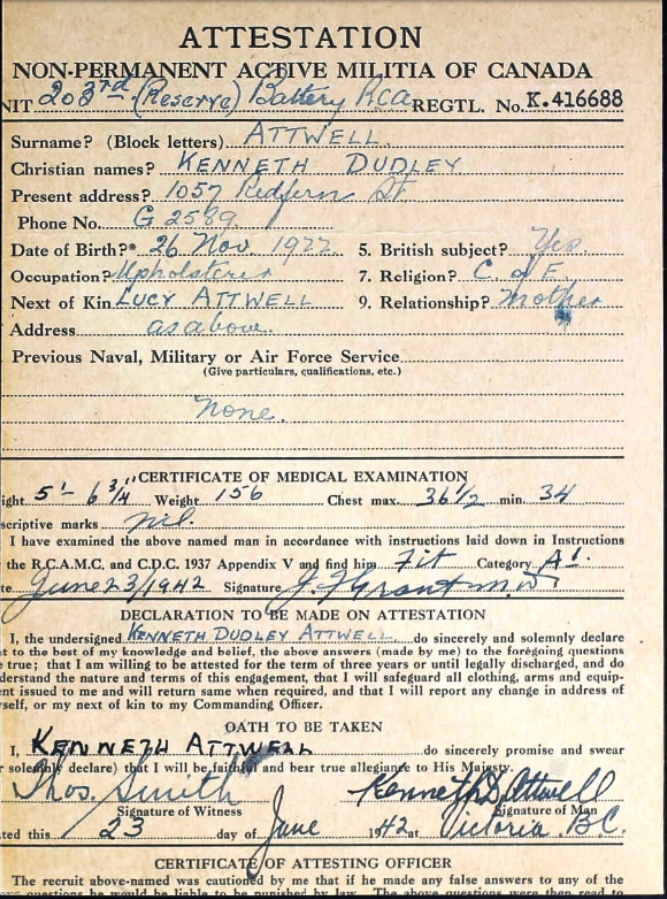 ATTESTATION
NON-PERMANENT ACTIVE MILITIA OF CANADA
NIT 203rd (Reserve) Battery RCA REGTL. No. K.416688
Surname? (Block letters) ATTWELL.
Christian names? KENNETH DUDLEY
Present address? 1057 Redfern St
Phone No. G 2589
Date of Birth?* 26 Nov. 1922 5. British subject? Yes.
Occupation? Upholsterer 7. Religion? C. of E.
Next of Kin LUCY ATTWELL 9. Relationship? Mother
Address as above.
Previous Naval, Military or Air Force Service
(Give particulars, qualifications, etc.)
None.
CERTIFICATE OF MEDICAL EXAMINATION
ight 5'- 6 3/4" Weight 156 Chest max. 36 1/2 min. 34
scriptive marks nil.
I have examined the above named man in accordance with instructions laid down in Instructions
the R.C.A.M.C. and C.D.C. 1937 Appendix V and find him Fit Category A1.
te June 23/1942 Signature J. F. Grant M.D.
DECLARATION TO BE MADE ON ATTESTATION
I, the undersigned KENNETH DUDLEY ATTWELL do sincerely and solemnly declare
t to the best of my knowledge and belief, the above answers (made by me) to the foregoing questions
e true; that I am willing to be attested for the term of three years or until legally discharged, and do
derstand the nature and terms of this engagement, that I will safeguard all clothing, arms and equip-
ent issued to me and will return same when required, and that I will report any change in address of
rself, or my next of kin to my Commanding Officer.
OATH TO BE TAKEN
I, KENNETH ATTWELL do sincerely promise and swear
r solemnly declare) that I will be faithful and bear true allegiance to His Majesty.
Thos. Smith Kenneth D. Attwell
Signature of Witness Signature of Man
ted this 23 day of June 1942 at Victoria. B.C.
CERTIFICATE OF ATTESTING OFFICER
The recruit above-named was cautioned by me that if he made any false answers to any of the
questions he would be liable to be punished by law. The above questions were then read to